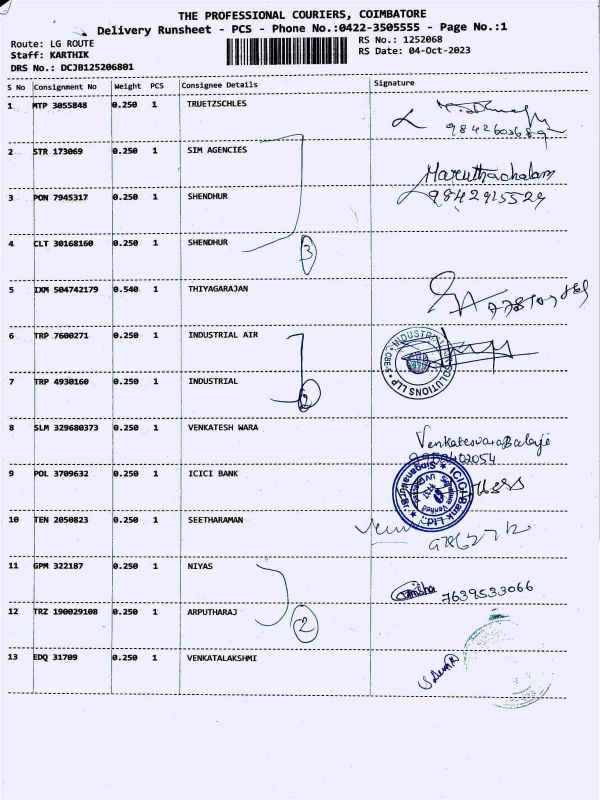 THE PROFESSIONAL COURIERS, COIMBATORE
Delivery Runsheet - PCS - Phone No.:0422-3505555 - Page No.:1
Route: LG ROUTE
RS No.: 1252068
Staff: KARTHIK
RS Date: 04-Oct-2023
DRS No.: DCJB125206801
S No Consignment No Weight PCS Consignee Details Signature
1 MTP 3055848 0.250 1 TRUETZSCHLES
2 STR 173069 0.250 1 SIM AGENCIES
Maruthachalam
3 PON 7945317 0.250 1 SHENDHUR 9842915529
4 CLT 30168160 0.250 1 SHENDHUR 3
5 IXM 504742179 0.540 1 THIYAGARAJAN
6 TRP 7600271 0.250 1 INDUSTRIAL AIR
SOLUTIONS LLP CBE-5
7 TRP 4930160 0.250 1 INDUSTRIAL 2
8 SLM 329680373 0.250 1 VENKATESH WARA Venkateswara Balaji
9 POL 3709632 0.250 1 ICICI BANK
ICICI Bank Ltd.
10 TEN 2050823 0.250 1 SEETHARAMAN
11 GPM 322187 0.250 1 NIYAS
7639533066
12 TRZ 190029108 0.250 1 ARPUTHARAJ 2
13 EDQ 31709 0.250 1 VENKATALAKSHMI